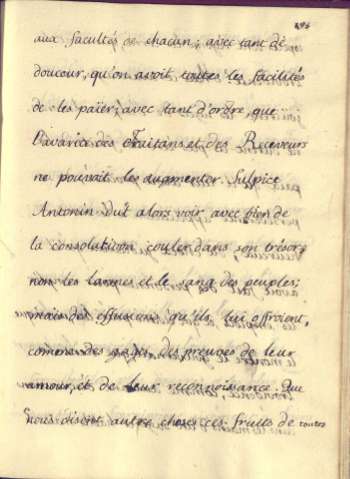 aux facultés de chacun; avec tant de
douceur, qu'on avoit toutes les facilités
de les païer; avec tant d'ordre, que
l'avarice des Traitans et des Receveurs
ne pouvait les augmenter. Sulpice
Antonin dut alors voir avec bien de
la consolation couler dans son trésor
non les larmes et le sang des peuples;
mais des effusions qu'ils lui offroient,
comme des gages, des preuves de leur
amour, et de leur reconnoissance. Que
nous disent autre chose ces fruits de toutes